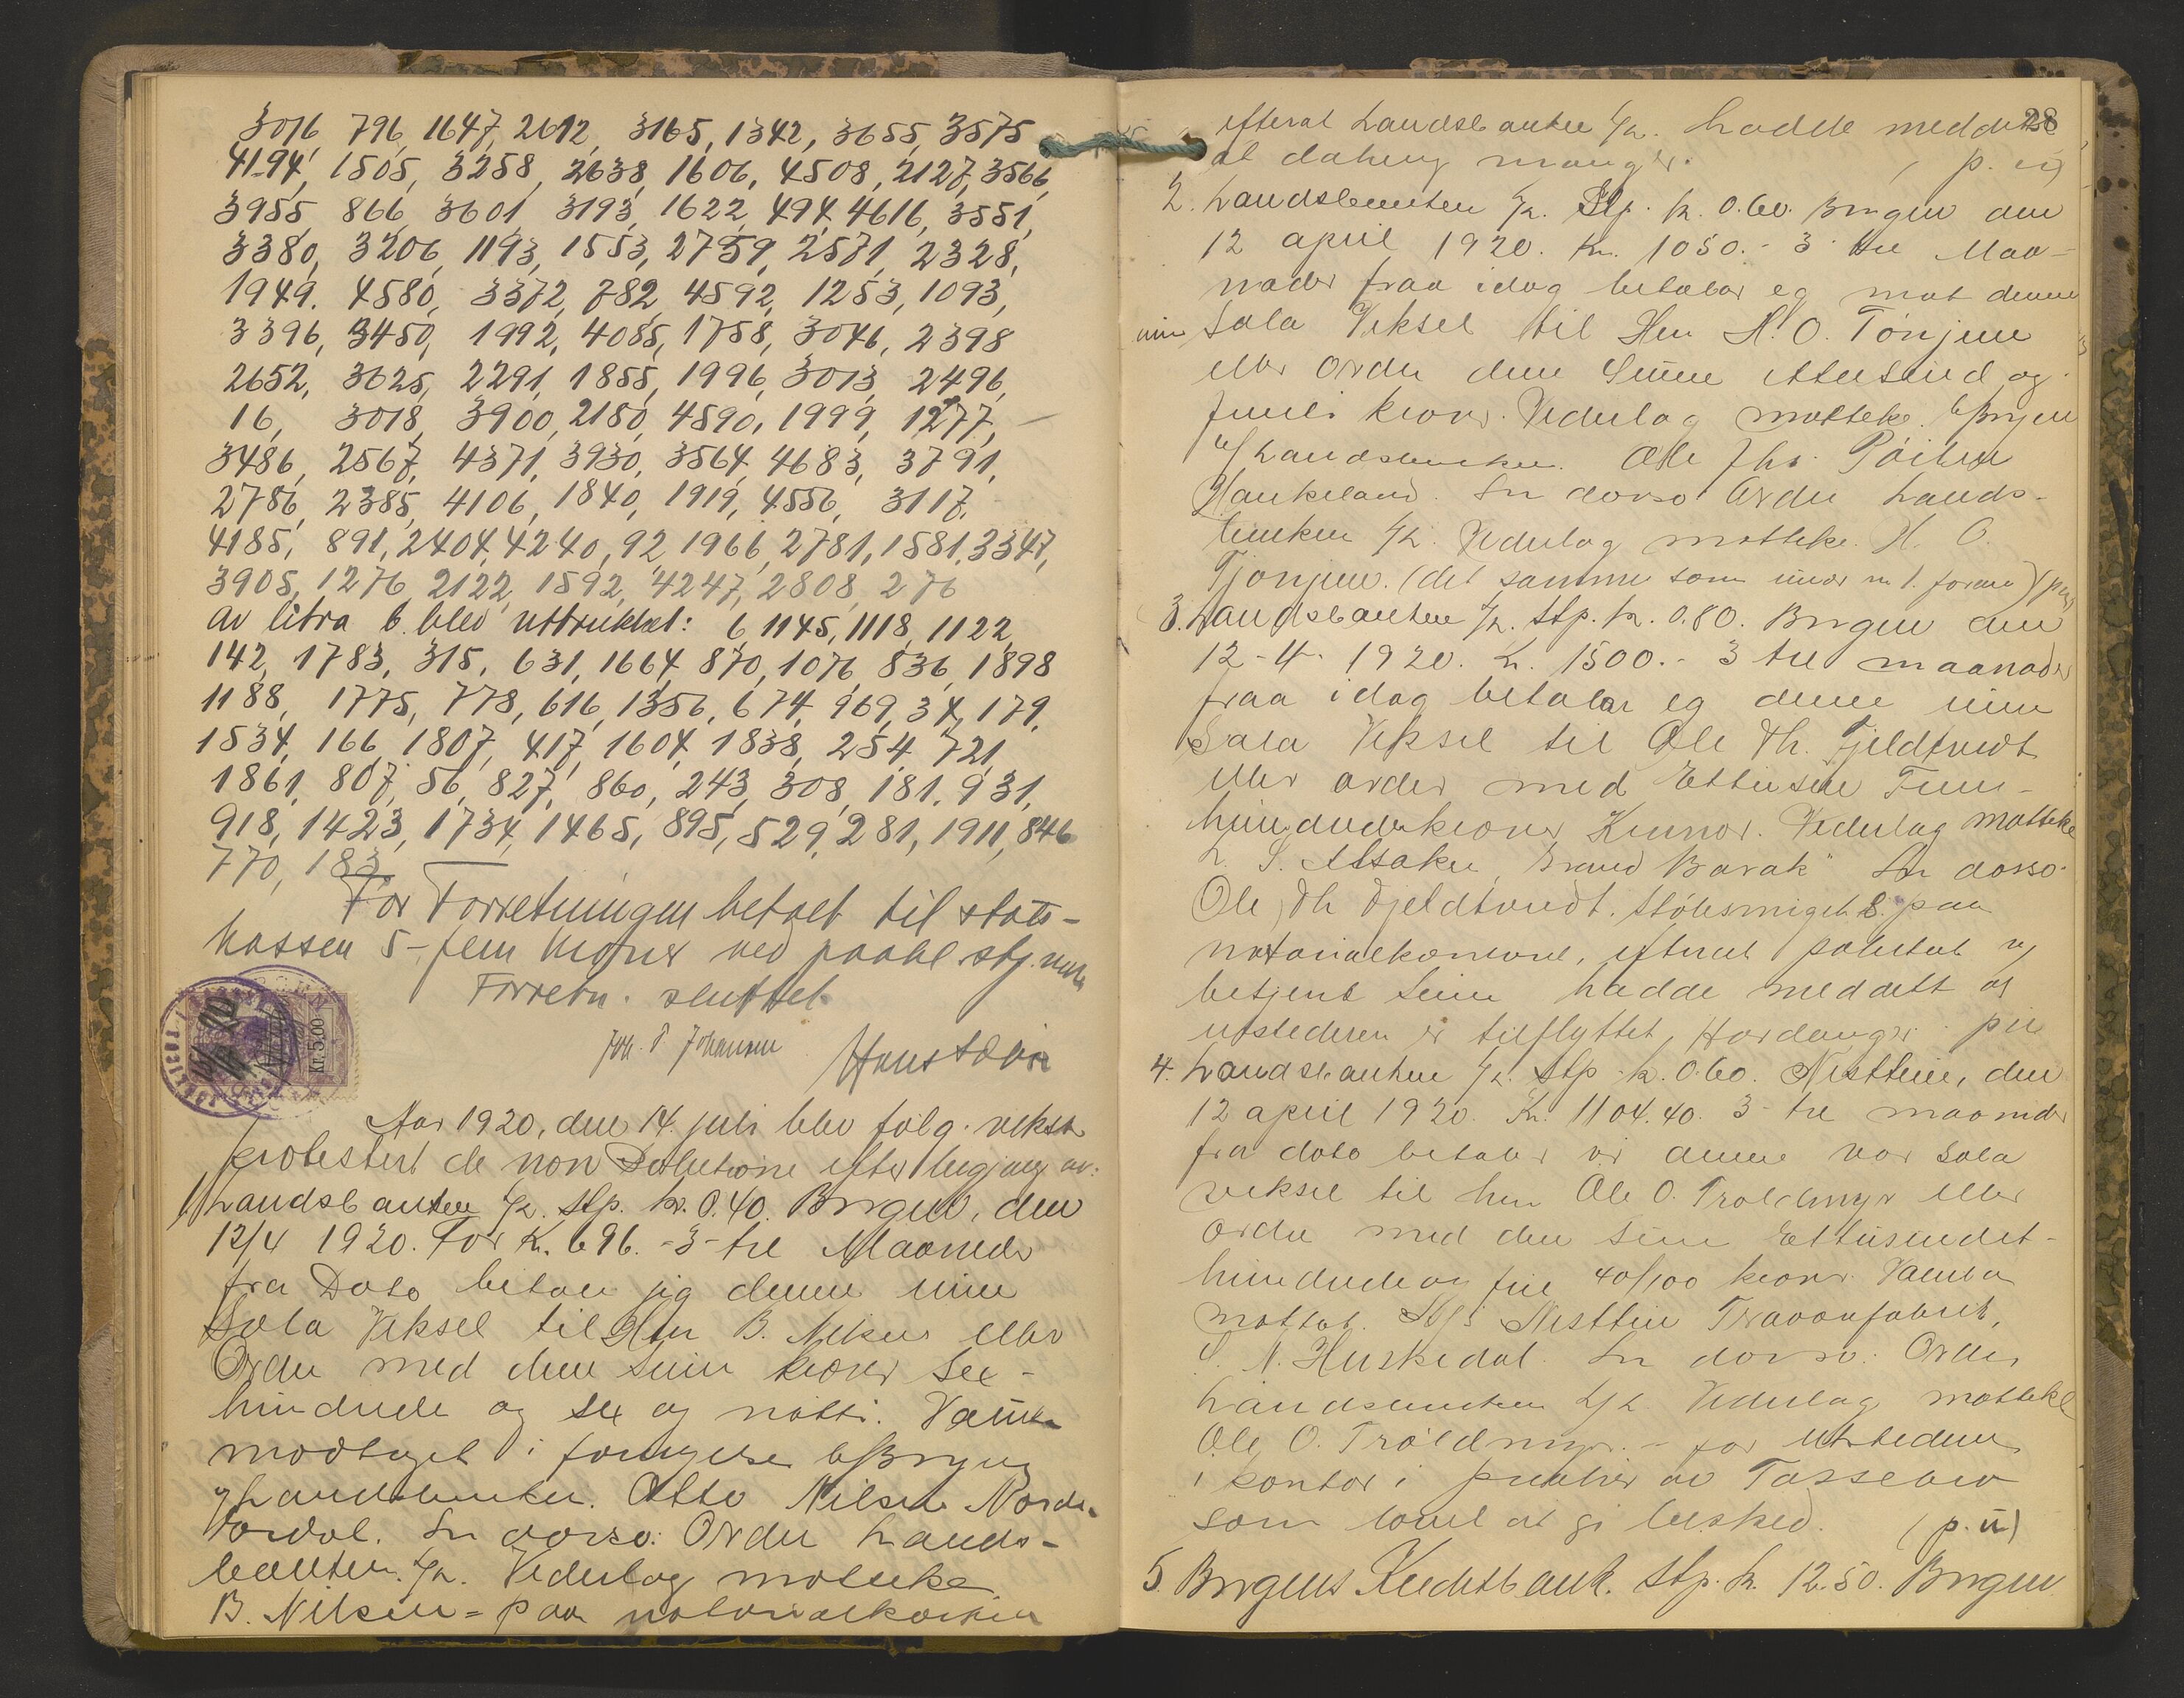 3016, 796, 1647, 2612, 3165, 1342, 3655, 3575,
4194, 1505, 3258, 2638, 1606, 4508, 2127, 3566,
3955, 866, 3601, 3193, 1622, 494, 4616, 3551,
3380, 3206, 1193, 1553, 2759, 2571, 2328,
1949. 4580, 3372, 782, 4592, 1253, 1093,
3396, 3450, 1992, 4085, 1758, 3046, 2398
2652, 3625, 2291, 1855, 1996, 3013, 2496,
16, 3018, 3900, 2180, 4590, 1999, 1277,
3486, 2567, 4371, 3930, 3564, 4683, 3791,
2786, 2385, 4106, 1840, 1919, 4556, 3117.
4185, 891, 2404, 4240, 92, 1966, 2781, 1581, 3347,
3905, 1276, 2122, 1592, 4247, 2808, 276
av litra b. blev uttrukket: 6, 1145, 1118, 1122,
142, 1783, 315, 631, 1664, 870, 1076, 836, 1898
1188, 1775, 778, 616, 1356, 674, 969, 34, 179,
1534, 166, 1807, 417, 1604, 1838, 254, 721,
1861, 807, 56, 827, 860, 243, 308, 181, 931,
918, 1423, 1734, 1465, 895, 529, 281, 1911, 846
770, 183.
For Forretningen betalt til stats-
kassen 5- fem kroner ved paakl. stp. merke
Forretn. sluttet.
Kr. 5.00
Joh. Johansen
Aar 1920, den 14. juli blev følg. veksler
protestert de non Solutione efter begjæring av:
1) Landsbanken A/L. Stp. kr. 0.40. Bergen, den
12/4 1920. For Kr. 696. - 3 - tre Maaneder
fra Dato betaler jeg denne min
Sola Veksel til Herr B. Nilsen eller
Ordre med den Sum kroner Sex-
hundrede og sex og nitti. Valuta
modtaget i fornyelse b/Bergen
Landsbanken. Otto Nilsen Nordre
In dorso: Ordre Lands-
banken A/L. Vederlag motteke
B. Nilsen = paa notarialkontoret
28
efterat Landsbanken A/L. hadde meddelt
at dekning mangler. (p. u)
2. Landsbanken A/L. Stp. kr. 0.60. Bergen den
12 april 1920. Kr. 1050. - 3 - tre Maa-
nader fraa idag betalar eg mot denne
min Sola Veksel til Herr H. O. Tönjum
eller Ordre den Summ ettusind og
femti kroner. Vederlag motteke. b/Bergen
Landsbanken. Ole Jhs.
Haukeland. In dorso Ordre Lands-
banken A/L. Vederlag motteke. H. O.
Tjönjum. (det samme som under nr 1. foran) (p.u)
3. Landsbanken A/L. Stp. kr. 0.80. Bergen den
12-4- 1920. Kr. 1500. - 3 tre maanader
fraa idag betalar eg denne min
Sola Veksel til Ole Th. Fjeldtvedt
eller ordre med Ettusene Fem-
hundrede kroner Kroner. Vederlag motteke
In dorso.
Ole Th Fjeldtvedt. Stölesmuget 8. paa
notarialkontoret, efterat
betjent hadde meddelt at
utstederen er tilflyttet Hardanger. p u
4. Landsbanken A/L. Stp. kr. 0.60. Nesttun, den
12 april 1920. Kr. 1104.40. 3 - tre maaneder
fra dato betaler vi denne vor Sola
veksel til herr Ole O. Troldmyr eller
ordre med den sum Ettusendet-
hundrede og fire 40/100 kroner. Valuta
mottat. A/S Nesttun Travarefabrik,
N. Huskedal. In dorso: Ordre
Landsbanken A/L Vederlag motteke
Ole O. Troldmyr. - for utstederen
i kontor i av
som lovet at gi besked. (p. u)
5. Bergens Kreditbank. Stp. kr. 12.50. Bergen